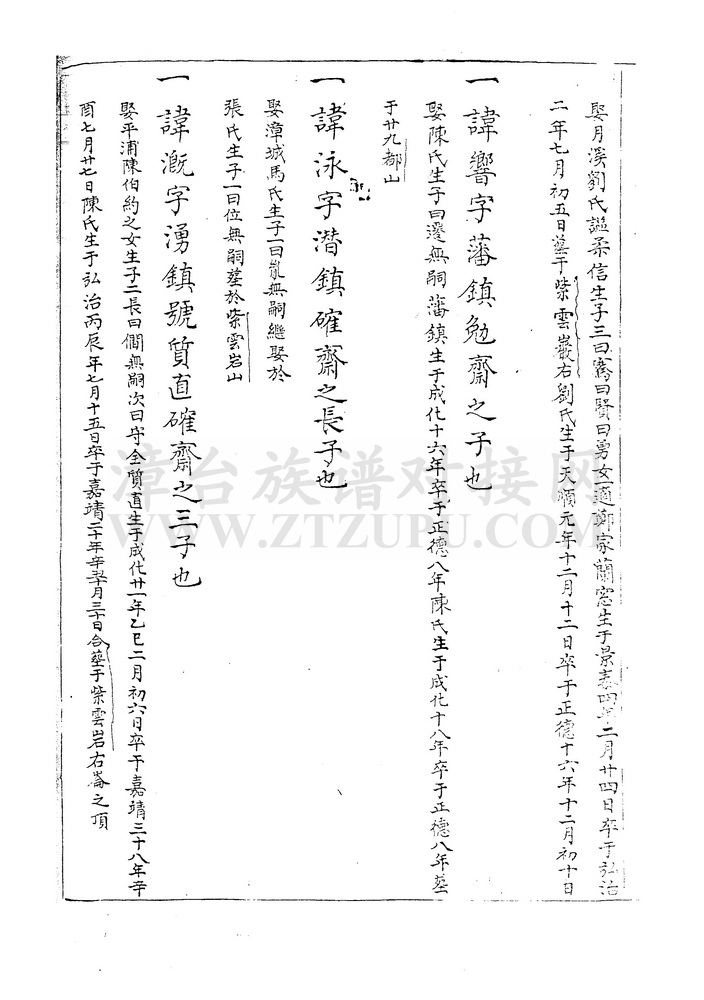 娶月溪劉氏諡柔信生子三曰騫曰賢曰勇女適鄭家蘭窓生于景泰四年二月廿四日卒于弘治
二年七月初五日墓于紫雲巖右劉氏生于天順元年十二月十二日卒于正德十六年十二月初十日
一諱響字藩鎮勉齋之子也
娶陳氏生子曰瓊無嗣藩鎮生于成化十六年卒于正德八年陳氏生于成化十八年卒于正德八年墓
于廿九都山
一諱泳字潛鎮確齋之長子也
娶漳城馬氏生子一曰胤無嗣繼娶於
張氏生子一曰位無嗣墓於紫雲岩山
一諱溉字湧鎮號質直確齋之三子也
娶平浦陳伯約之女生子二長曰僴無嗣次曰守全質直生于成化廿一年乙巳二月初六日卒于嘉靖三十八年辛
酉七月廿七日陳氏生于弘治丙辰年七月十五日卒于嘉靖二十年辛丑月三十日合塟于紫雲岩右崙之頂
漳台族谱对接网
WWW.ZTZUPU.COM